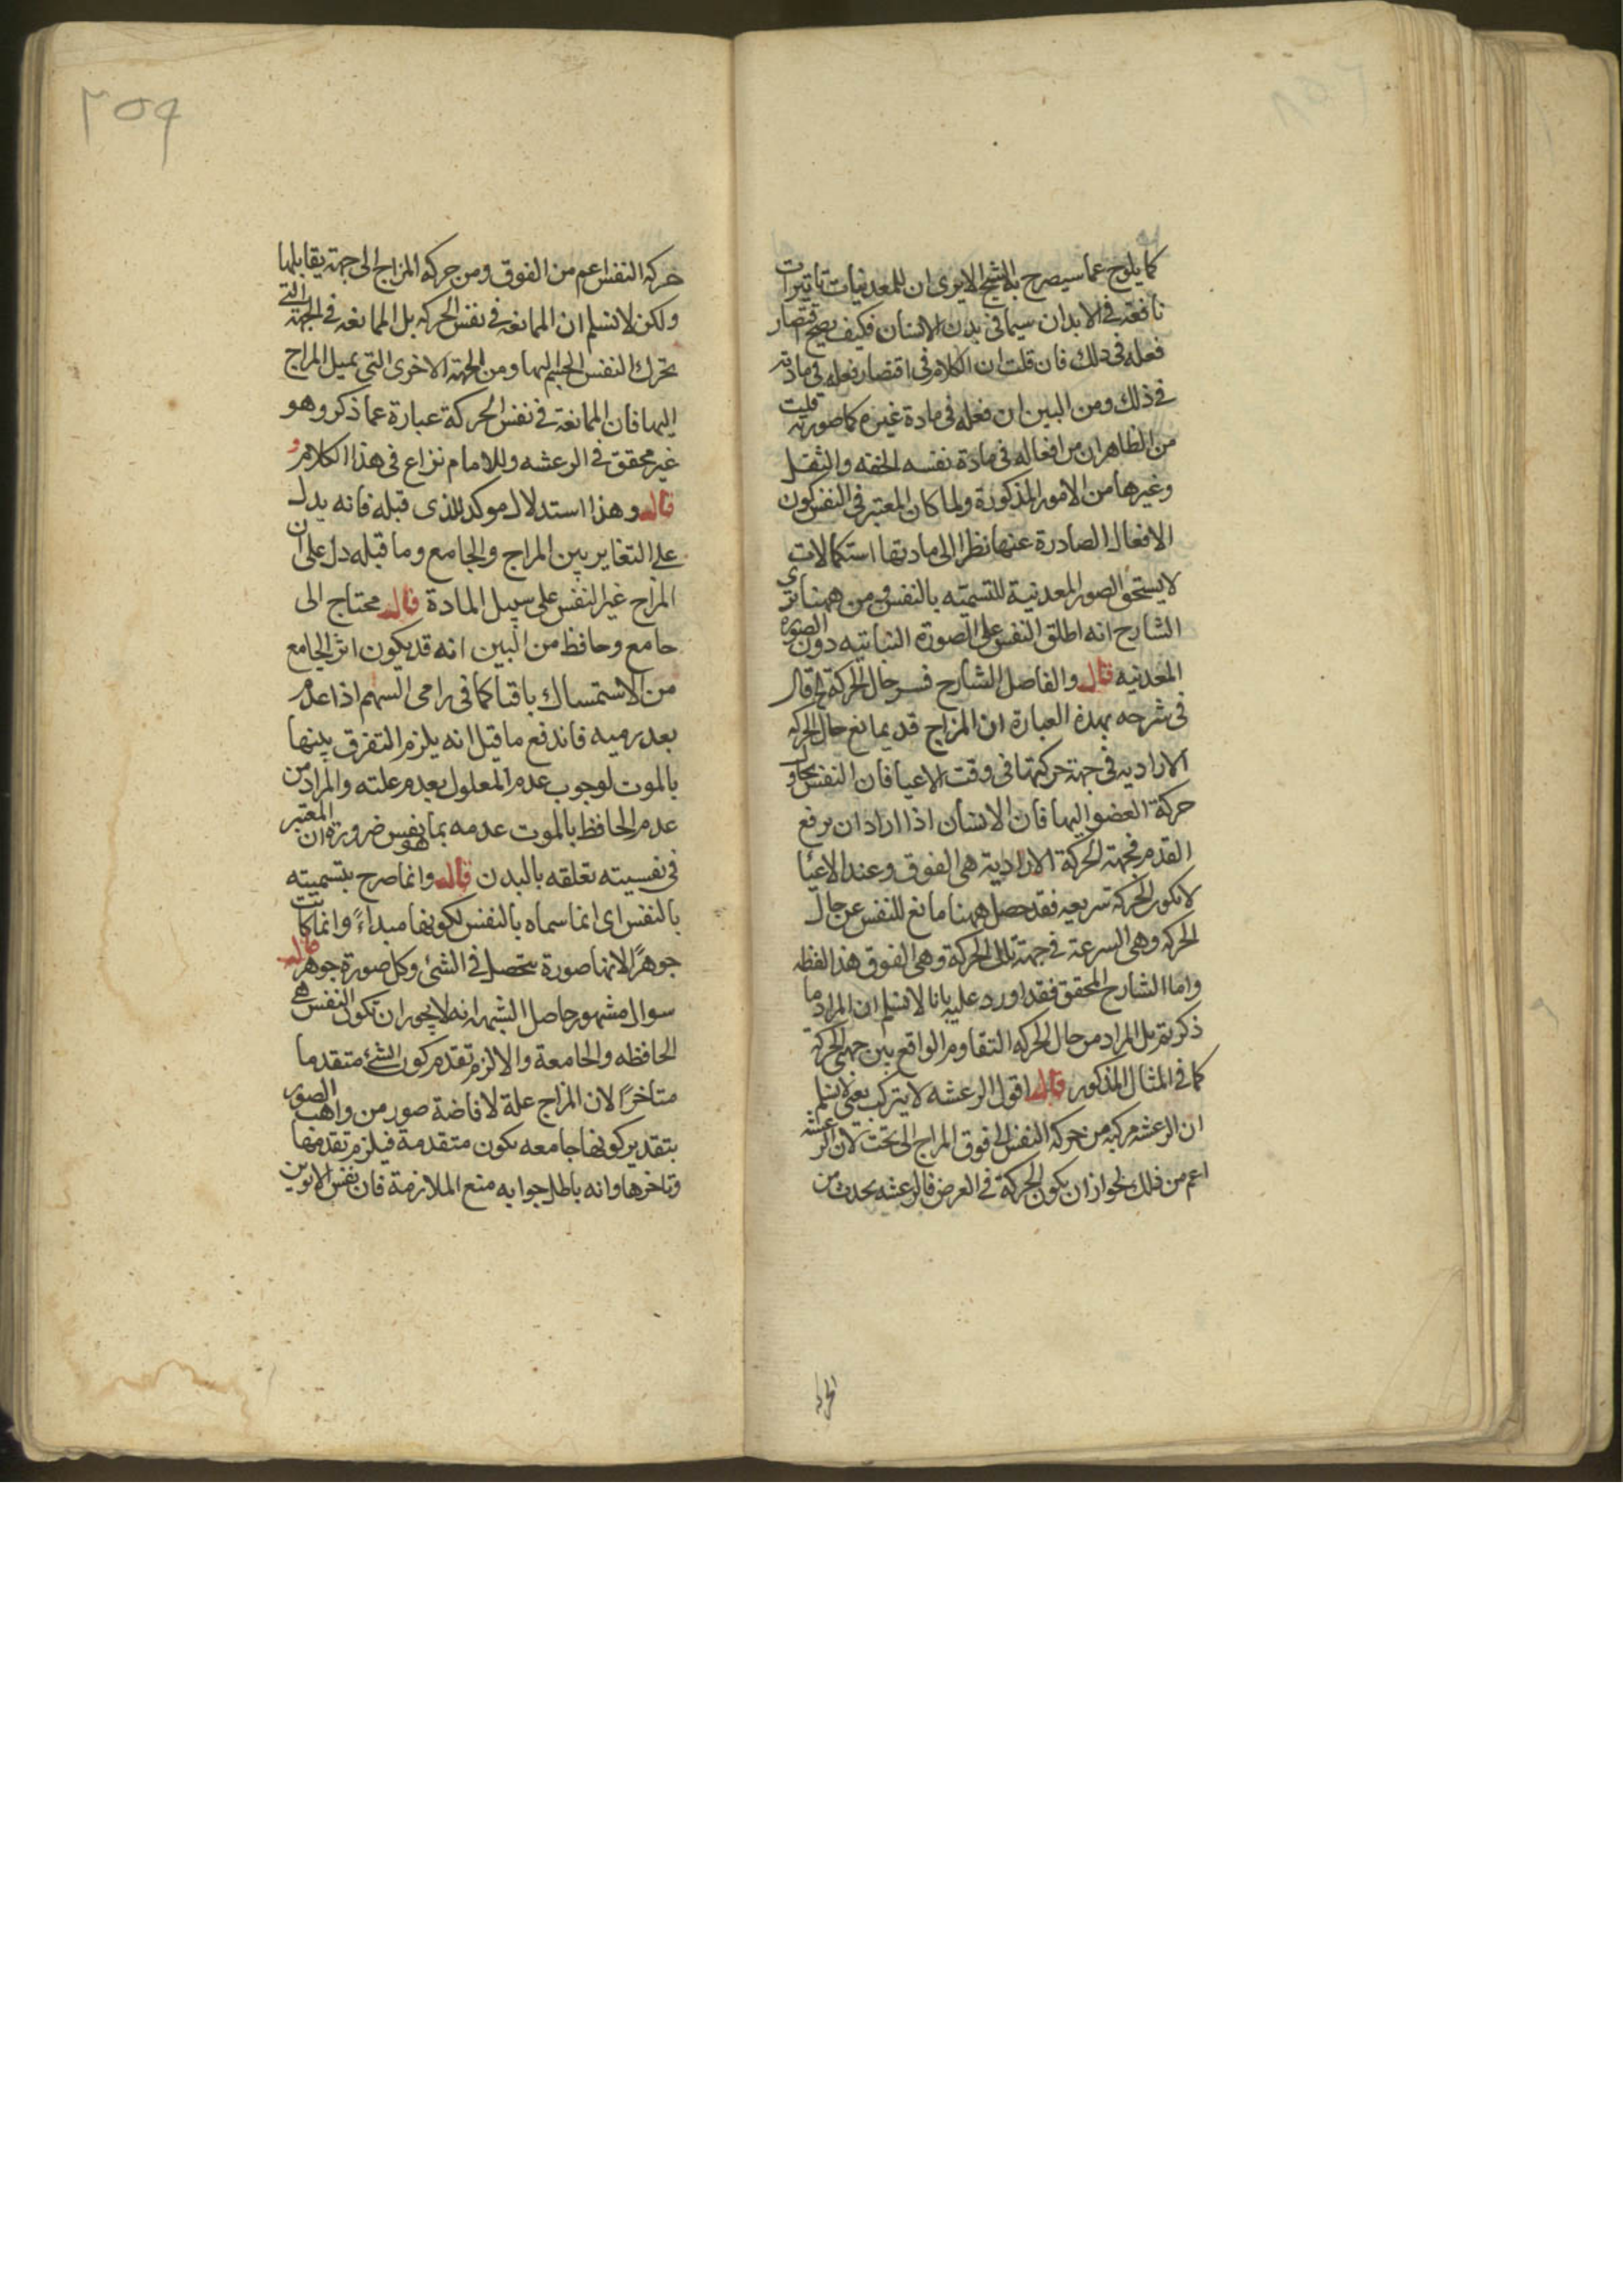 كما يلوح عما سيصرح به الشيخ الايرى ان للمعدنيات تاثيرات
نافعة فى الابدان سيما فى بدن الانسان فكيف يصح اقتصار
فعله فى ذلك فان قلت ان الكلام فى اقتصار فعله فى مادته
فى ذلك ومن البين ان فعله فى مادة غيره كما صورته قلت
من الظاهر ان من افعاله فى مادة نفسه الخفه والثقل
وغيرها من الامور المذكورة ولما كان المعتبر فى النفس كون
الافعال الصادرة عنها نظرا الى مادتها استكمالات
لا يستحق الصور المعدنية للتسميته بالنفس ومن ههنا ترى
الشارح انه اطلق النفس على الصورة النباتيه دون الصورة
المعدنيه قال والفاضل الشارح فسر حال الحركة الخ قال
فى شرحه بهذه العبارة ان المزاج قد يمانع حال الحركه
الاراديه فى جهة حركتها فى وقت الاعيا فان النفس يحاول
حركة العضو اليها فان الانسان اذا اراد ان يرفع
القدم فجهة الحركة الارادية هى الفوق وعند الاعيا
لا يكون الحركة سريعيه فقد حصل ههنا مانع للنفس عن حال
الحركه وهى السرعة فى جهة تلك الحركة وهى الفوق هذا لفظه
واما الشارح المحقق فقد اورد عليه بانا لا نسلم ان المراد ما
ذكرتم بل المراد من حال الحركه التقاوم الواقع بين جهتى الحركة
كما فى المثال المذكور قال اقول الرعشه لا يتركب يعنى لا نسلم
ان الرعشه مركبه من حركه النفس الى فوق المزاج الى تحت لان الرعشه
اعم من ذلك لجواز ان يكون الحركة فى العرض فالرعشه يحدث من
حركه النفس اعم من الفوق ومن حركه المزاج الى جهة يقابلها
ولكن لا نسلم ان الممانعه فى نفس الحركه بل الممانعه فى الجهة التى
تحرك النفس الجسم اليها ومن الجهة الاخرى التى يميل المزاج
اليها فان الممانعة فى نفس الحركة عبارة عما ذكر وهو
غير محقق فى الرعشه وللامام نزاع فى هذا الكلام و
قال وهذا استدلال موكد للذى قبله فانه يدل
على التغاير بين المزاج والجامع وما قبله دل على ان
المزاج غير النفس على سبيل المادة قال محتاج الى
جامع وحافظ من البين انه قد يكون اثر الجامع
من الاستمساك باقيا كما فى رامى السهم اذا عدم
بعد رميه فاندفع ما قيل انه يلزم التفرق بينها
بالموت لوجوب عدم المعلول بعدم علته والمراد من
عدم الحافظ بالموت عدمه بما هو نفس ضرورة ان المعتبر
فى نفسيته تعلقه بالبدن قال وانما صرح بتسميته
بالنفس اى انما سماه بالنفس لكونها مبداءً وانما كانت
جوهرًا لانها صورة ستحصل فى الشئ وكل صورة جوهر قال
سوال مشهور حاصل الشبهه انه لا يجوز ان تكون النفس هى
الحافظه والجامعة والا لزم تقدم كون الشئ متقدما
متاخرًا لان المزاج علة لافاضة صور من واهب الصور
بتقدير كونها جامعه يكون متقدمة فيلزم تقدمها
وتاخرها وانه باطل جوابه منع الملازمة فان نفس الابوين